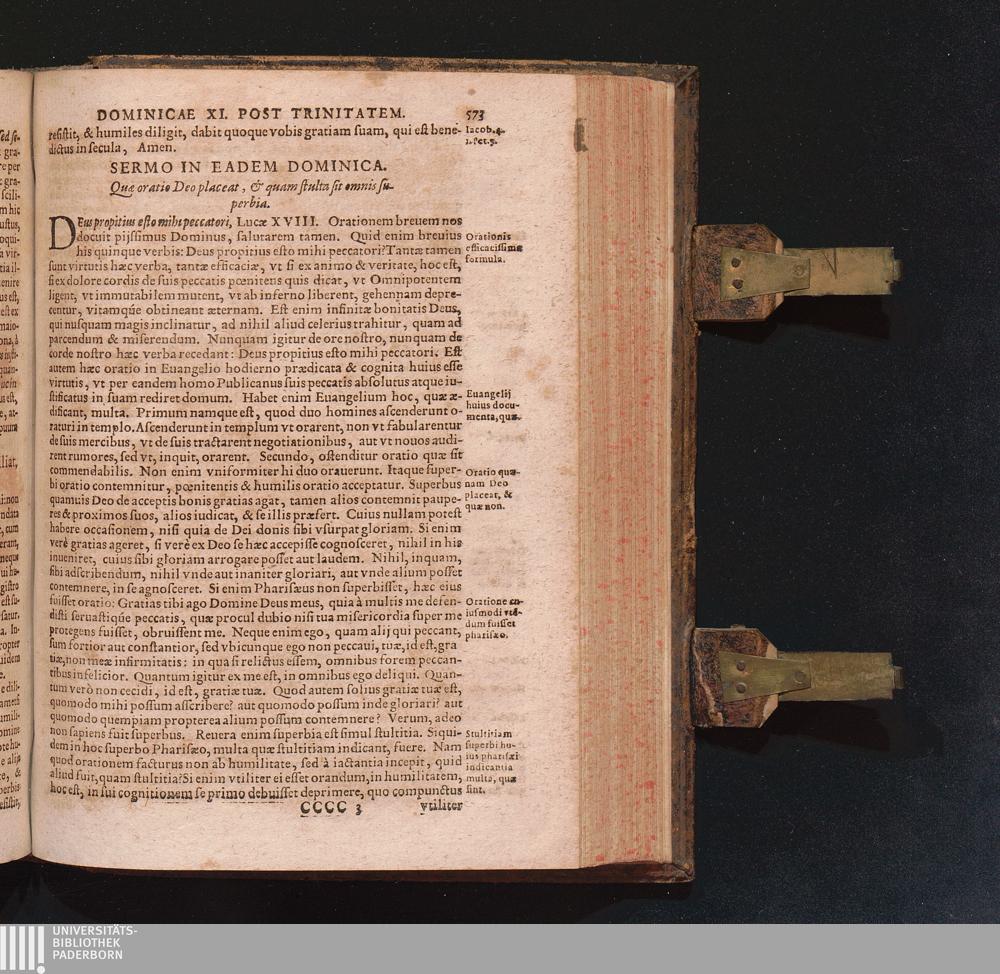 DOMINICAE XI. POST TRINITATEM. 573
resistit, & humiles diligit, dabit quoque vobis gratiam suam, qui est bene-
dictus in secula, Amen.
Iacob. 4.
1. Pet. 5.
SERMO IN EADEM DOMINICA.
Quæ oratio Deo placeat, & quam stulta sit omnis su-
perbia.
DEus propitius esto mihi peccatori, Lucæ XVIII. Orationem breuem nos
docuit pijssimus Dominus, salutarem tamen. Quid enim breuius
his quinque verbis: Deus propitius esto mihi peccatori? Tantæ tamen
sunt virtutis hæc verba, tantæ efficaciæ, vt si ex animo & veritate, hoc est,
si ex dolore cordis de suis peccatis pœnitens quis dicat, vt Omnipotentem
ligent, vt immutabilem mutent, vt ab inferno liberent, gehennam depre-
centur, vitamq́ue obtineant æternam. Est enim infinitæ bonitatis Deus,
qui nusquam magis inclinatur, ad nihil aliud celerius trahitur, quam ad
parcendum & miserendum. Nunquam igitur de ore nostro, nunquam de
corde nostro hæc verba recedant: Deus propitius esto mihi peccatori. Est
autem hæc oratio in Euangelio hodierno prædicata & cognita huius esse
virtutis, vt per eandem homo Publicanus suis peccatis absolutus atque iu-
stificatus in suam rediret domum. Habet enim Euangelium hoc, quæ æ-
dificant, multa. Primum namque est, quod duo homines ascenderunt o-
raturi in templo. Ascenderunt in templum vt orarent, non vt fabularentur
de suis mercibus, vt de suis tractarent negotiationibus, aut vt nouos audi-
rent rumores, sed vt, inquit, orarent. Secundo, ostenditur oratio quæ sit
commendabilis. Non enim vniformiter hi duo orauerunt. Itaque super-
bi oratio contemnitur, pœnitentis & humilis oratio acceptatur. Superbus
quamuis Deo de acceptis bonis gratias agat, tamen alios contemnit paupe-
res & proximos suos, alios iudicat, & se illis præfert. Cuius nullam potest
habere occasionem, nisi quia de Dei donis sibi vsurpat gloriam. Si enim
verè gratias ageret, si verè ex Deo se hæc accepisse cognosceret, nihil in his
inueniret, cuius sibi gloriam arrogare posset aut laudem. Nihil, inquam,
sibi adscribendum, nihil vnde aut inaniter gloriari, aut vnde alium posset
contemnere, in se agnosceret. Si enim Pharisæus non superbisset, hæc eius
fuisset oratio: Gratias tibi ago Domine Deus meus, quia à multis me defen-
disti seruastiq́ue peccatis, quæ procul dubio nisi tua misericordia super me
protegens fuisset, obruissent me. Neque enim ego, quam alij qui peccant,
sum fortior aut constantior, sed vbicunque ego non peccaui, tuæ, id est, gra
tiæ, non meæ infirmitatis: in qua si relictus essem, omnibus forem peccan-
tibus infelicior. Quantum igitur ex me est, in omnibus ego deliqui. Quan-
tum verò non cecidi, id est, gratiæ tuæ. Quod autem solius gratiæ tuæ est,
quomodo mihi possum ascribere? aut quomodo possum inde gloriari? aut
quomodo quempiam propterea alium possum contemnere? Verum, adeo
non sapiens fuit superbus. Reuera enim superbia est simul stultitia. Siqui-
dem in hoc superbo Pharisæo, multa quæ stultitiam indicant, fuere. Nam
quod orationem facturus non ab humilitate, sed à iactantia incepit, quid
aliud fuit, quam stultitia? Si enim vtiliter ei esset orandum, in humilitatem,
hoc est, in sui cognitionem se primo debuisset deprimere, quo compunctus
CCCC 3 vtiliter
Orationis
efficacissima
formula.
Euangelij
huius docu-
menta, quæ.
Oratio quæ-
nam Deo
placeat, &
quæ non.
Oratione cu-
iusmodi vtē-
dum fuisset
pharisæo.
Stultitiam
superbi hu-
ius pharisæi
indicantia
multa, quæ
sint.
UNIVERSITÄTS-
BIBLIOTHEK
PADERBORN